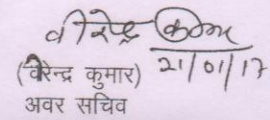 वीरेन्द्र कुमार
21/01/17
(वीरेन्द्र कुमार)
अवर सचिव